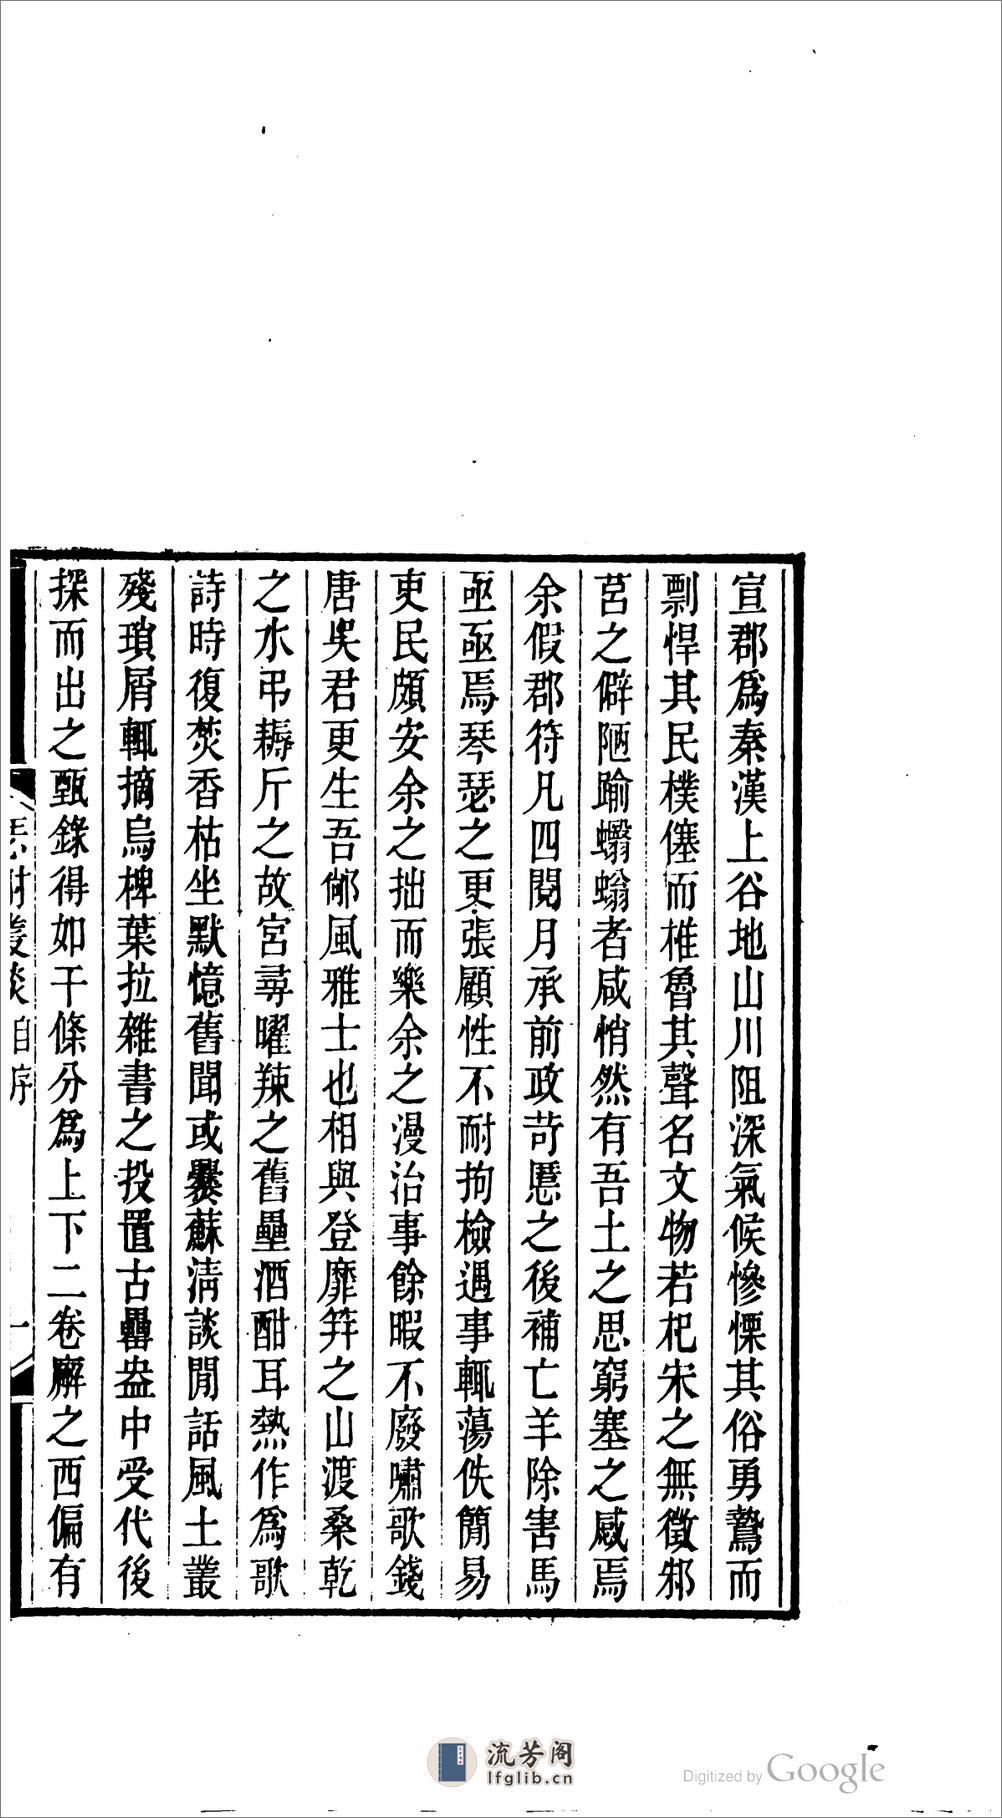 宣郡爲秦漢上谷地山川阻深氣候慘慄其俗勇鷙而
剽悍其民樸僿而椎魯其聲名文物若杞宋之無徵邾
莒之僻陋踰蠮螉者咸悄然有吾土之思窮塞之感焉
余假郡符凡四閱月承前政苛慝之後補亡羊除害馬
亟亟焉琴瑟之更張顧性不耐拘檢遇事輒蕩佚簡易
吏民頗安余之拙而樂余之漫治事餘暇不廢嘯歌錢
唐吳君更生吾鄉風雅士也相與登靡笄之山渡桑乾
之水弔耨斤之故宮尋曜辣之舊壘酒酣耳熱作爲歌
詩時復焚香枯坐默憶舊聞或爨蘇清談閒話風土叢
殘瑣屑輒摘烏椑葉拉雜書之投置古罍盎中受代後
探而出之甄錄得如干條分爲上下二卷廨之西偏有
叢談 自序 一
流芳阁
lfglib.cn
Digitized by Google